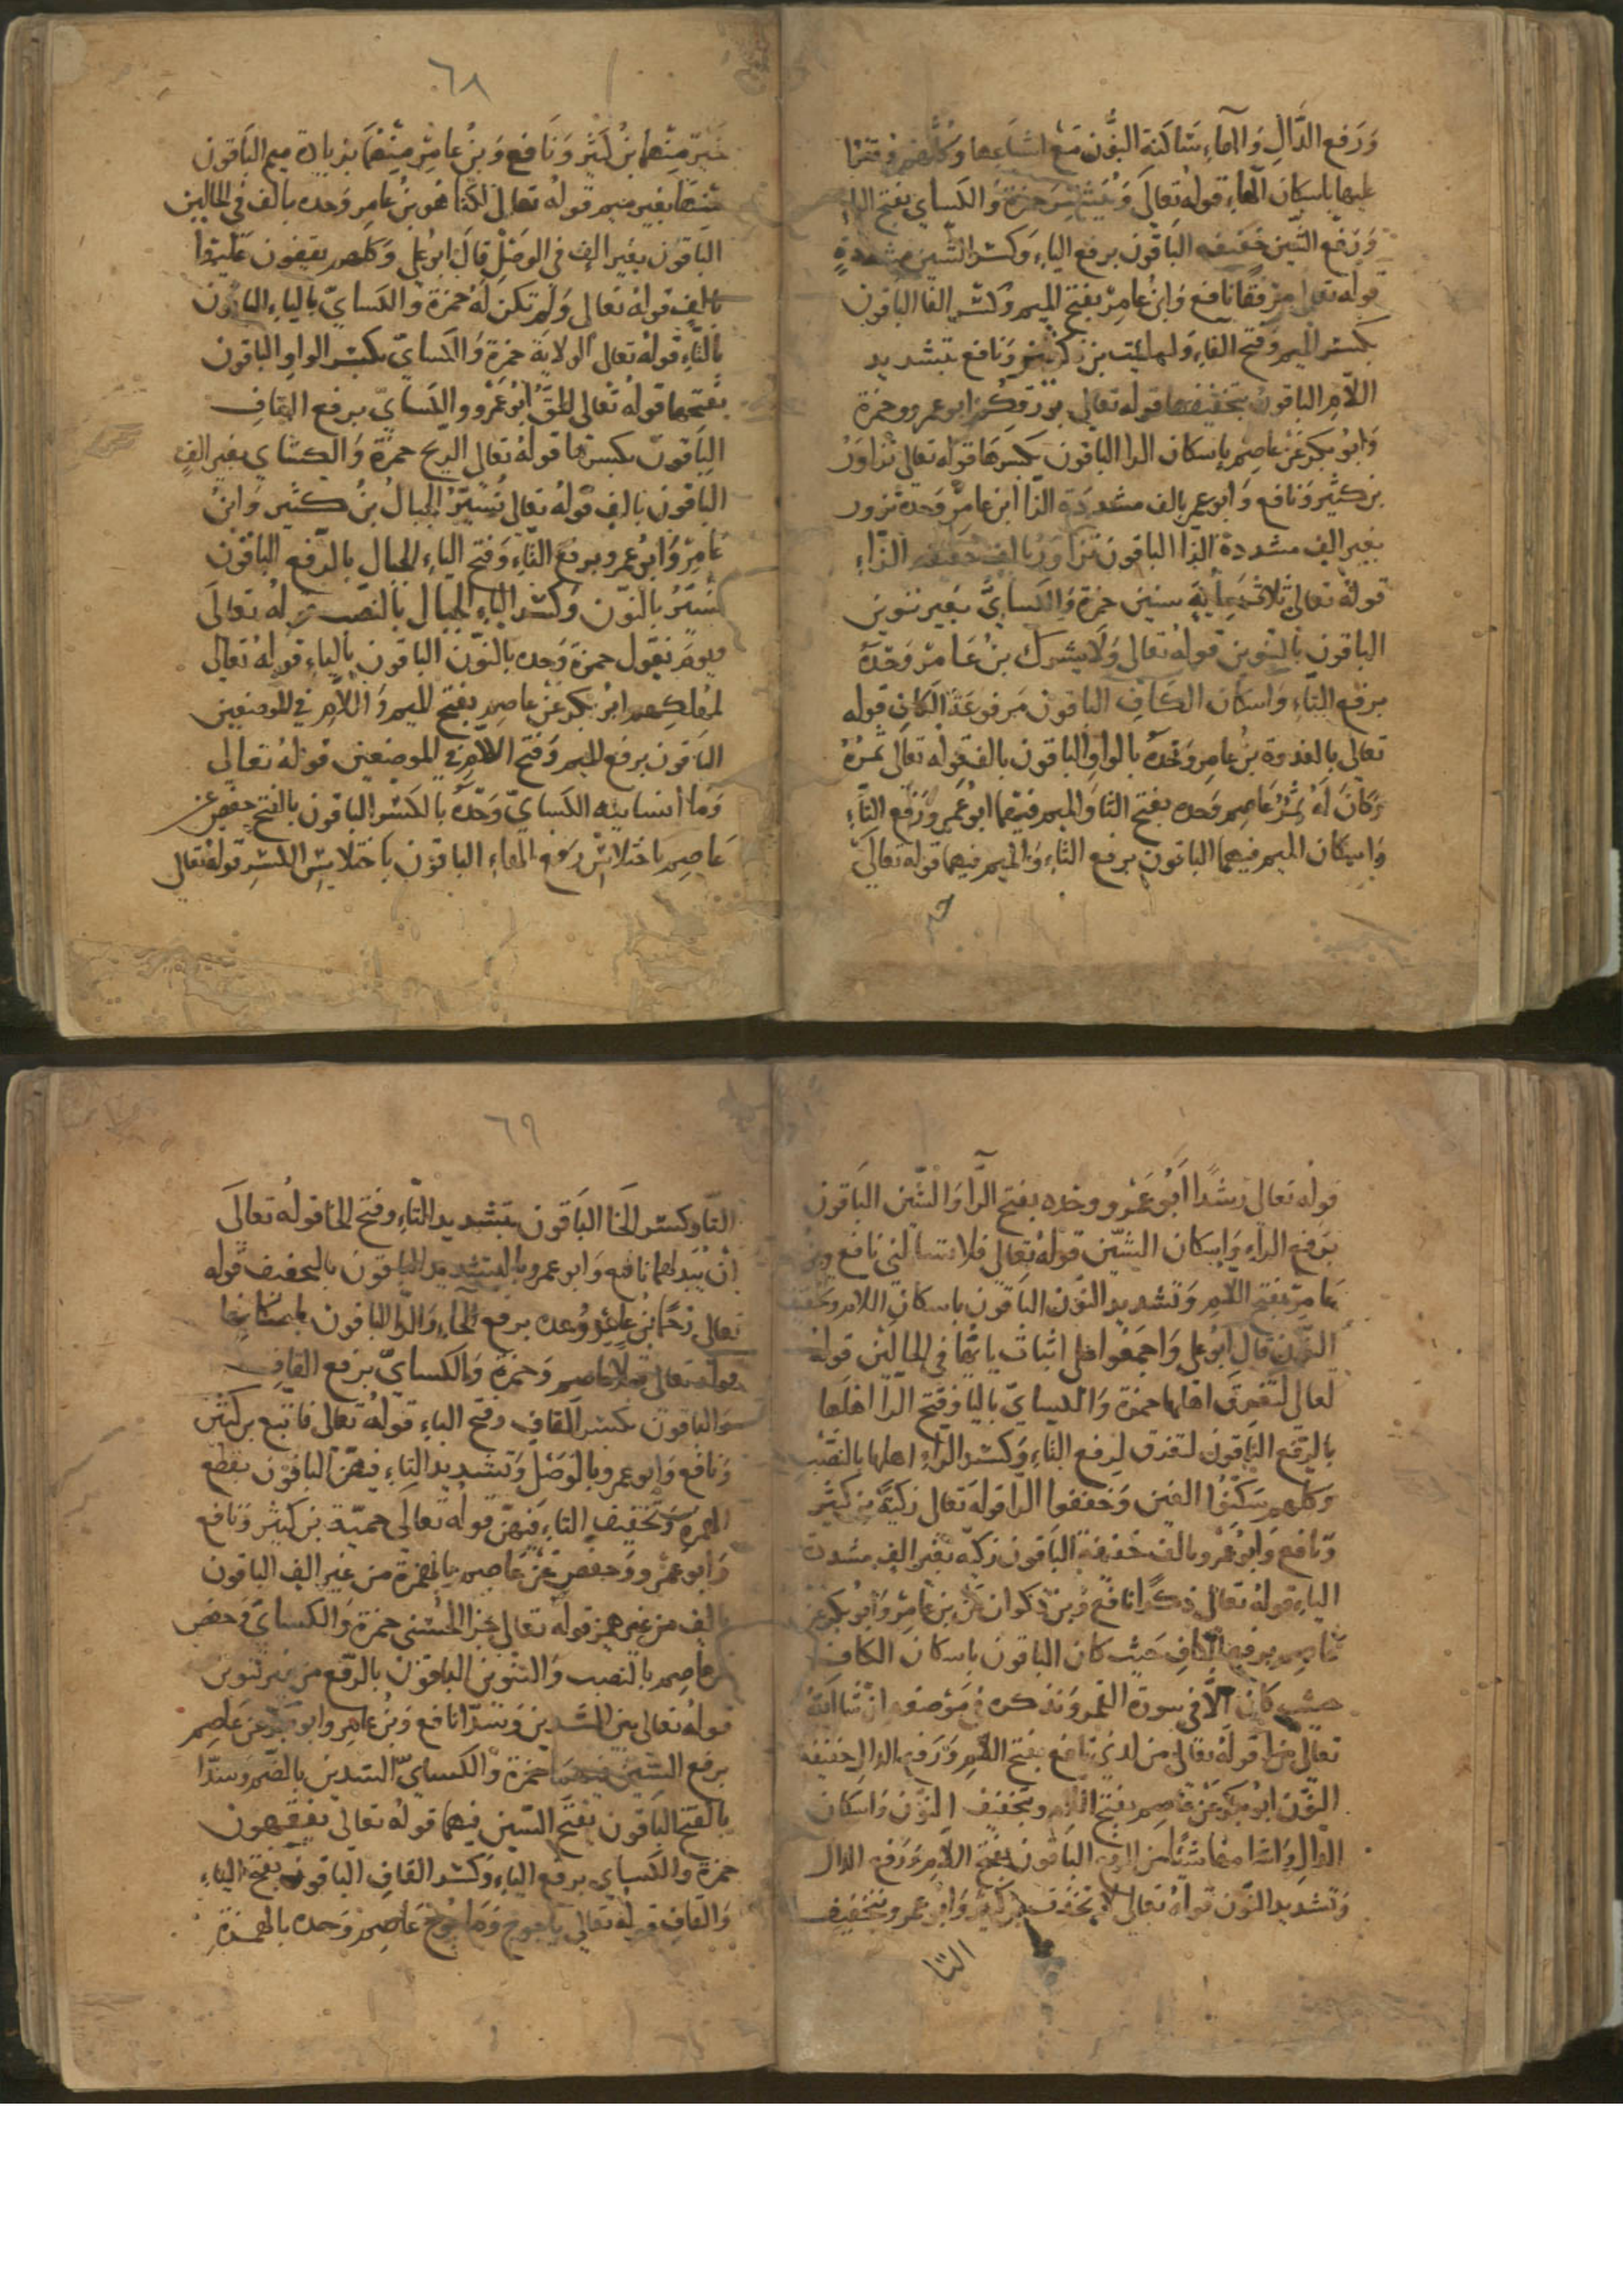 وَرَفع الدَّالِ وَالهاءِ سَاكنة النوُّن مَع اشباعِها وَكُلُّهم وقفوا
عليها باسكان الهاءِ قوله تعالَى وَيُبَشِّر حمزة وَالكساي بفتح الياءِ
وَرَفع الشّين خَفيفه الباقون برفع الياءِ وَكسْر الشّين مشددةٍ
قوله تعالى مِرْفقًا نافع وَابنُ عامِرٍ بفتح الميم وَكسْر الفا الباقون
بكسْر الميم وَفتح الفاءِ وَلملئت بن كثير وَنافع بتشديد
اللّامِ الباقون بتخفيفها قوله تعالى بوَرْقِكم ابو عمرو وحمزة
وَابوُ بكر عَن عاصِم بإسكان الرا الباقون بكسرها قوله تعالى تزاوَرُ
بن كثير وَنافع وَابو عمر بالف مشددَة الزّا ابن عامِرٍ وَحدهُ تزور
بغير الف مشددة الرّا الباقون تَزَاوَرُ بالف خفيفه الزّاءِ
قولهُ تعالى ثلاثمِايةٍ سنين حمزة وَالكسايُّ بغير تنوين
الباقون بالتنوين قولهُ تعالى وَلا يشرك بنُ عَامرٍ وَحْدَهُ
برفع التّاءِ وَاسكان الكافِ الباقون مَرفوعَةُ الكافِ قوله
تعالى بالغدوة بنُ عامِر وَحْدَهُ بالواو الباقون بالف قوله تعالى ثمرُهُ
وَكانَ لَهُ ثَمَرٌ عَاصِم وَحده بفتح الثا وَالميم فيهما ابو عَمرٍو رَفع الثَّاءِ
وَاسكان الميم فيهما الباقون برفع الثاءِ وَالميم فيهما قوله تعالَى
٦٨
خَيرًا مِنْهُما بنُ كَثير وَنَافع وَبنُ عامِرٍ مِنْهُمَا بزيادة ميم الباقون
منها بغير ميم قوله تعالى لكنّا هُو بنُ عامِر وَحده بالف في الحالين
البَاقُون بغير الف في الوَصْلِ قالَ ابوُ علي وَكلهم يقفون عَلَيْها
بالفٍ قوله تعالى وَلم تكن لَهُ حمزة وَالكسايّ بالياءِ الباقون
بالتّاءِ قولهُ تعالى الولايَة حمزة وَالكسايّ بكسْر الواو الباقون
بفتحها قولهُ تعْالى للهِ الحَقُّ ابُو عَمْرو والكسَايّ برفع القافِ
البَاقون بكسرها قولهُ تعالى الريح حمزة وَالكسَاي بغير الفٍ
الباقون بالف قولهُ تعالى تُسَيّرُ الجبالُ بنُ كثير وَابنُ
عَامِرٍ وَابوُ عمرو برفع التّاءِ وَفتح الياءِ الجبال بالرّفع الباقون
نُسَيّرُ بالنوّن وَكسْر الياءِ الجبال بالنصْب قولهُ تعالَى
ويومَ نقول حمزة وَحده بالنوّن الباقون بالياءِ قولهُ تعالى
لمَهلكهم ابوُ بكر عَن عاصِم بفتح الميم وَاللّامِ في الموضعين
البَاقون برفع الميم وَفتح اللامِ في الموضعين قولهُ تعالى
وَما أنسانيه الكسَايّ وَحْدَهُ بالكسْر الباقون بالفتح حفص عَن
عَاصِم باختلاسِ رَفع الهاءِ الباقون باختلاسِ الكسْر قولهُ تعالى
قوله تعالى رَشَدًا أبُو عَمْرو وحده بفتح الرَّا وَالشّين الباقون
برَفع الراءِ وَاسكان الشيّن قولهُ تعالى فلا تسألني نافع وبنُ
عَامِرٍ بفتح اللّامِ وَتشديد النوّن الباقون باسكان اللام وتخفيف
النوّن قال ابوُ علي وَاجمَعُوا على اثبات يائها في الحالين قولهُ
تعالى لتَغرق اهلها حمزة وَالكسايّ باليا وَفتح الرّا اهلها
بالرّفع الباقون لتغرق برفع التاءِ وَكسْر الراءِ اهلها بالنصْب
وَكلهم سَكّنوا الغين وَخففوا الرا قولهُ تعالى زكيَّة بن كثير
وَنافع وَابُو عَمْرو بالف خفيفة الباقون زكيّه بغير الف مشددة
الياءِ قولهُ تعالى نكرًا نافع وَبن ذكوان عَن بن عامِرٍ وَابوُ بكر عَن
عَاصِم برفع الكافِ حَيْث كان الباقون باسكان الكافِ
حيث كان الاّ في سورة القمر وَنذكره في مَوْضعهِ انْ شا اللهُ
تعالى قولهُ تعالى من لدني نافع بفتح اللّامِ وَرَفع الدال خفيفة
النوّن ابوُ بكر عَن عَاصِم بفتح اللام وبتخفيف النوّن وَاسكان
الدّال وَاشمامها شيئًا من الرفع الباقون بفتح اللّامِ وَرَفع الدال
وَتشديد النوّن قولهُ تعالى لاتخذت بن كثير وَابو عمرو بتخفيف
التا
٦٩
التّا وكسْر الخا البَاقون بتشديد التّاءِ وفتح الخا قولهُ تعالَى
أن يُبَدلهما نافع وَابو عمرو بالتشديد الباقون بالتخفيف قوله
تعالى رُحُمًا بنُ عامِرٍ وحده برفع الحاءِ وَالرا الباقون باسكانها
قوله تعالى قبلا عاصم وَحمزة وَالكسايّ برفع القافِ
وَالباقون بكسْر القافِ وفتح الباءِ قولهُ تعالى فاتّبع بن كثير
وَنافع وَابو عمرو بالوَصْل وَتشديد التاءِ فيهنّ الباقون بقطع
الهمزة وَتخفيف التاءِ فيهنّ قولهُ تعالَى حمئة بن كثير وَنافع
وَابو عَمْرو وَحفص عَنْ عَاصِم بالهمْزة من غير الفٍ الباقون
بالف من غير همز قولهُ تعالى جزا الحُسْنى حمزة وَالكسايّ وَحفص
عَن عاصِم بالنصب وَالتنوين الباقون بالرّفع من غير تنوين
قولهُ تعالى بين السّدين وَسَدّا نافع وَبنُ عامِر وابو بكر عَن عَاصِم
برفع السّين فيهما حمزة وَالكسايّ السّدين بالضّم وَسَدّا
بالفتح الباقون بفتح السّين فيهما قولهُ تعالى يفقهون
حمزة والكساي برفع الياءِ وَكسْر القافِ الباقون بفتح الياءِ
وَالقافِ قولهُ تعالى ياجوج وَماجوج عَاصِم وَحده بالهمزة